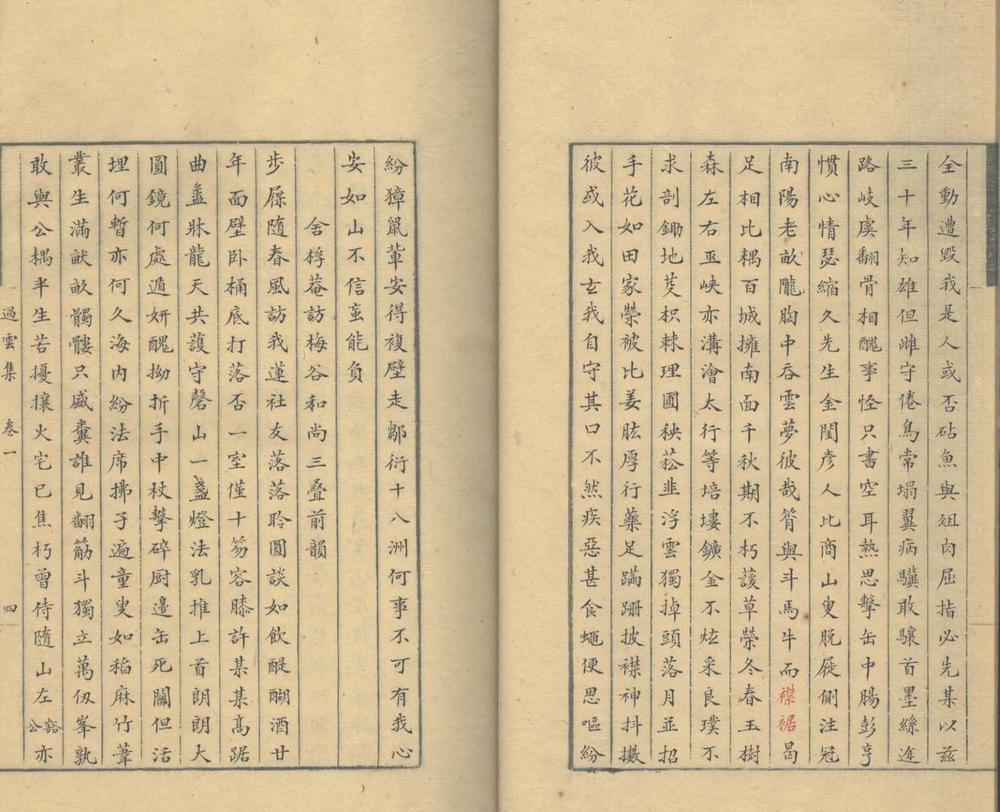 全動遭毀我是人或否砧魚與俎肉屈指必先某以茲
三十年知雄但雌守倦鳥常塌翼病驥敢驤首墨絲途
路岐虞翻骨相醜事怪只書空耳熱思擊缶中腸彭亨
慣心情瑟縮久先生金閨彥人比商山叟脫屣側注冠
南陽老畝隴胸中吞雲夢彼哉筲與斗馬牛而襟裾曷
足相比耦百城擁南面千秋期不朽護草榮冬春玉樹
森左右巫峽亦溝澮太行等培塿鑛金不炫采良璞不
求剖鋤地芟枳棘理圃秧菘韭浮雲獨掉頭落月並招
手花如田家榮被比姜肱厚行藥足蹣跚披襟神抖擻
彼或入我玄我自守其口不然疾惡甚食蠅便思嘔紛
紛獐鼠輩安得複壁走鄒衍十八洲何事不可有我心
安如山不信蚉能負
舍樗菴訪梅谷和尚三叠前韻
步屧隨春風訪我蓮社友落落聆圓談如飲醍醐酒廿
年面壁卧桶底打落否一室僅十笏容膝許某某高踞
曲盝牀龍天共護守磬山一盞燈法乳推上首朗朗大
圓鏡何處遁妍醜拗折手中杖擊碎厨邊缶死關但活
埋何暫亦何久海內紛法席拂子遍童叟如稻麻竹葦
叢生滿畎畝髑髏只盛糞誰見翻筋斗獨立萬仞峯孰
敢與公耦半生苦擾攘火宅已焦朽曾侍隨山左谿公亦
過雲集 卷一 四